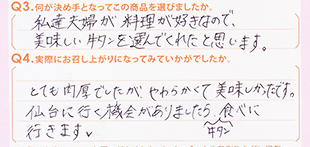 Q3.何が決め手となってこの商品を選びましたか。
私達夫婦が料理が好きなので、
美味しい牛タンを選んでくれたと思います。
Q4.実際にお召し上がりになってみていかがでしたか。
とても肉厚でしたが、やわらかくて美味しかったです。
仙台に行く機会がありましたら、食べに
行きます。
牛タン